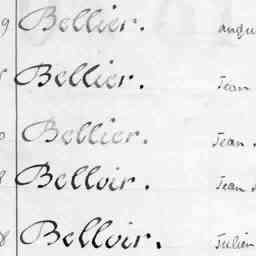 9 Bellier. augu
Bellier. Jean
Bellier. Jean
8 Belloir. Jean
8 Belloir. Julien